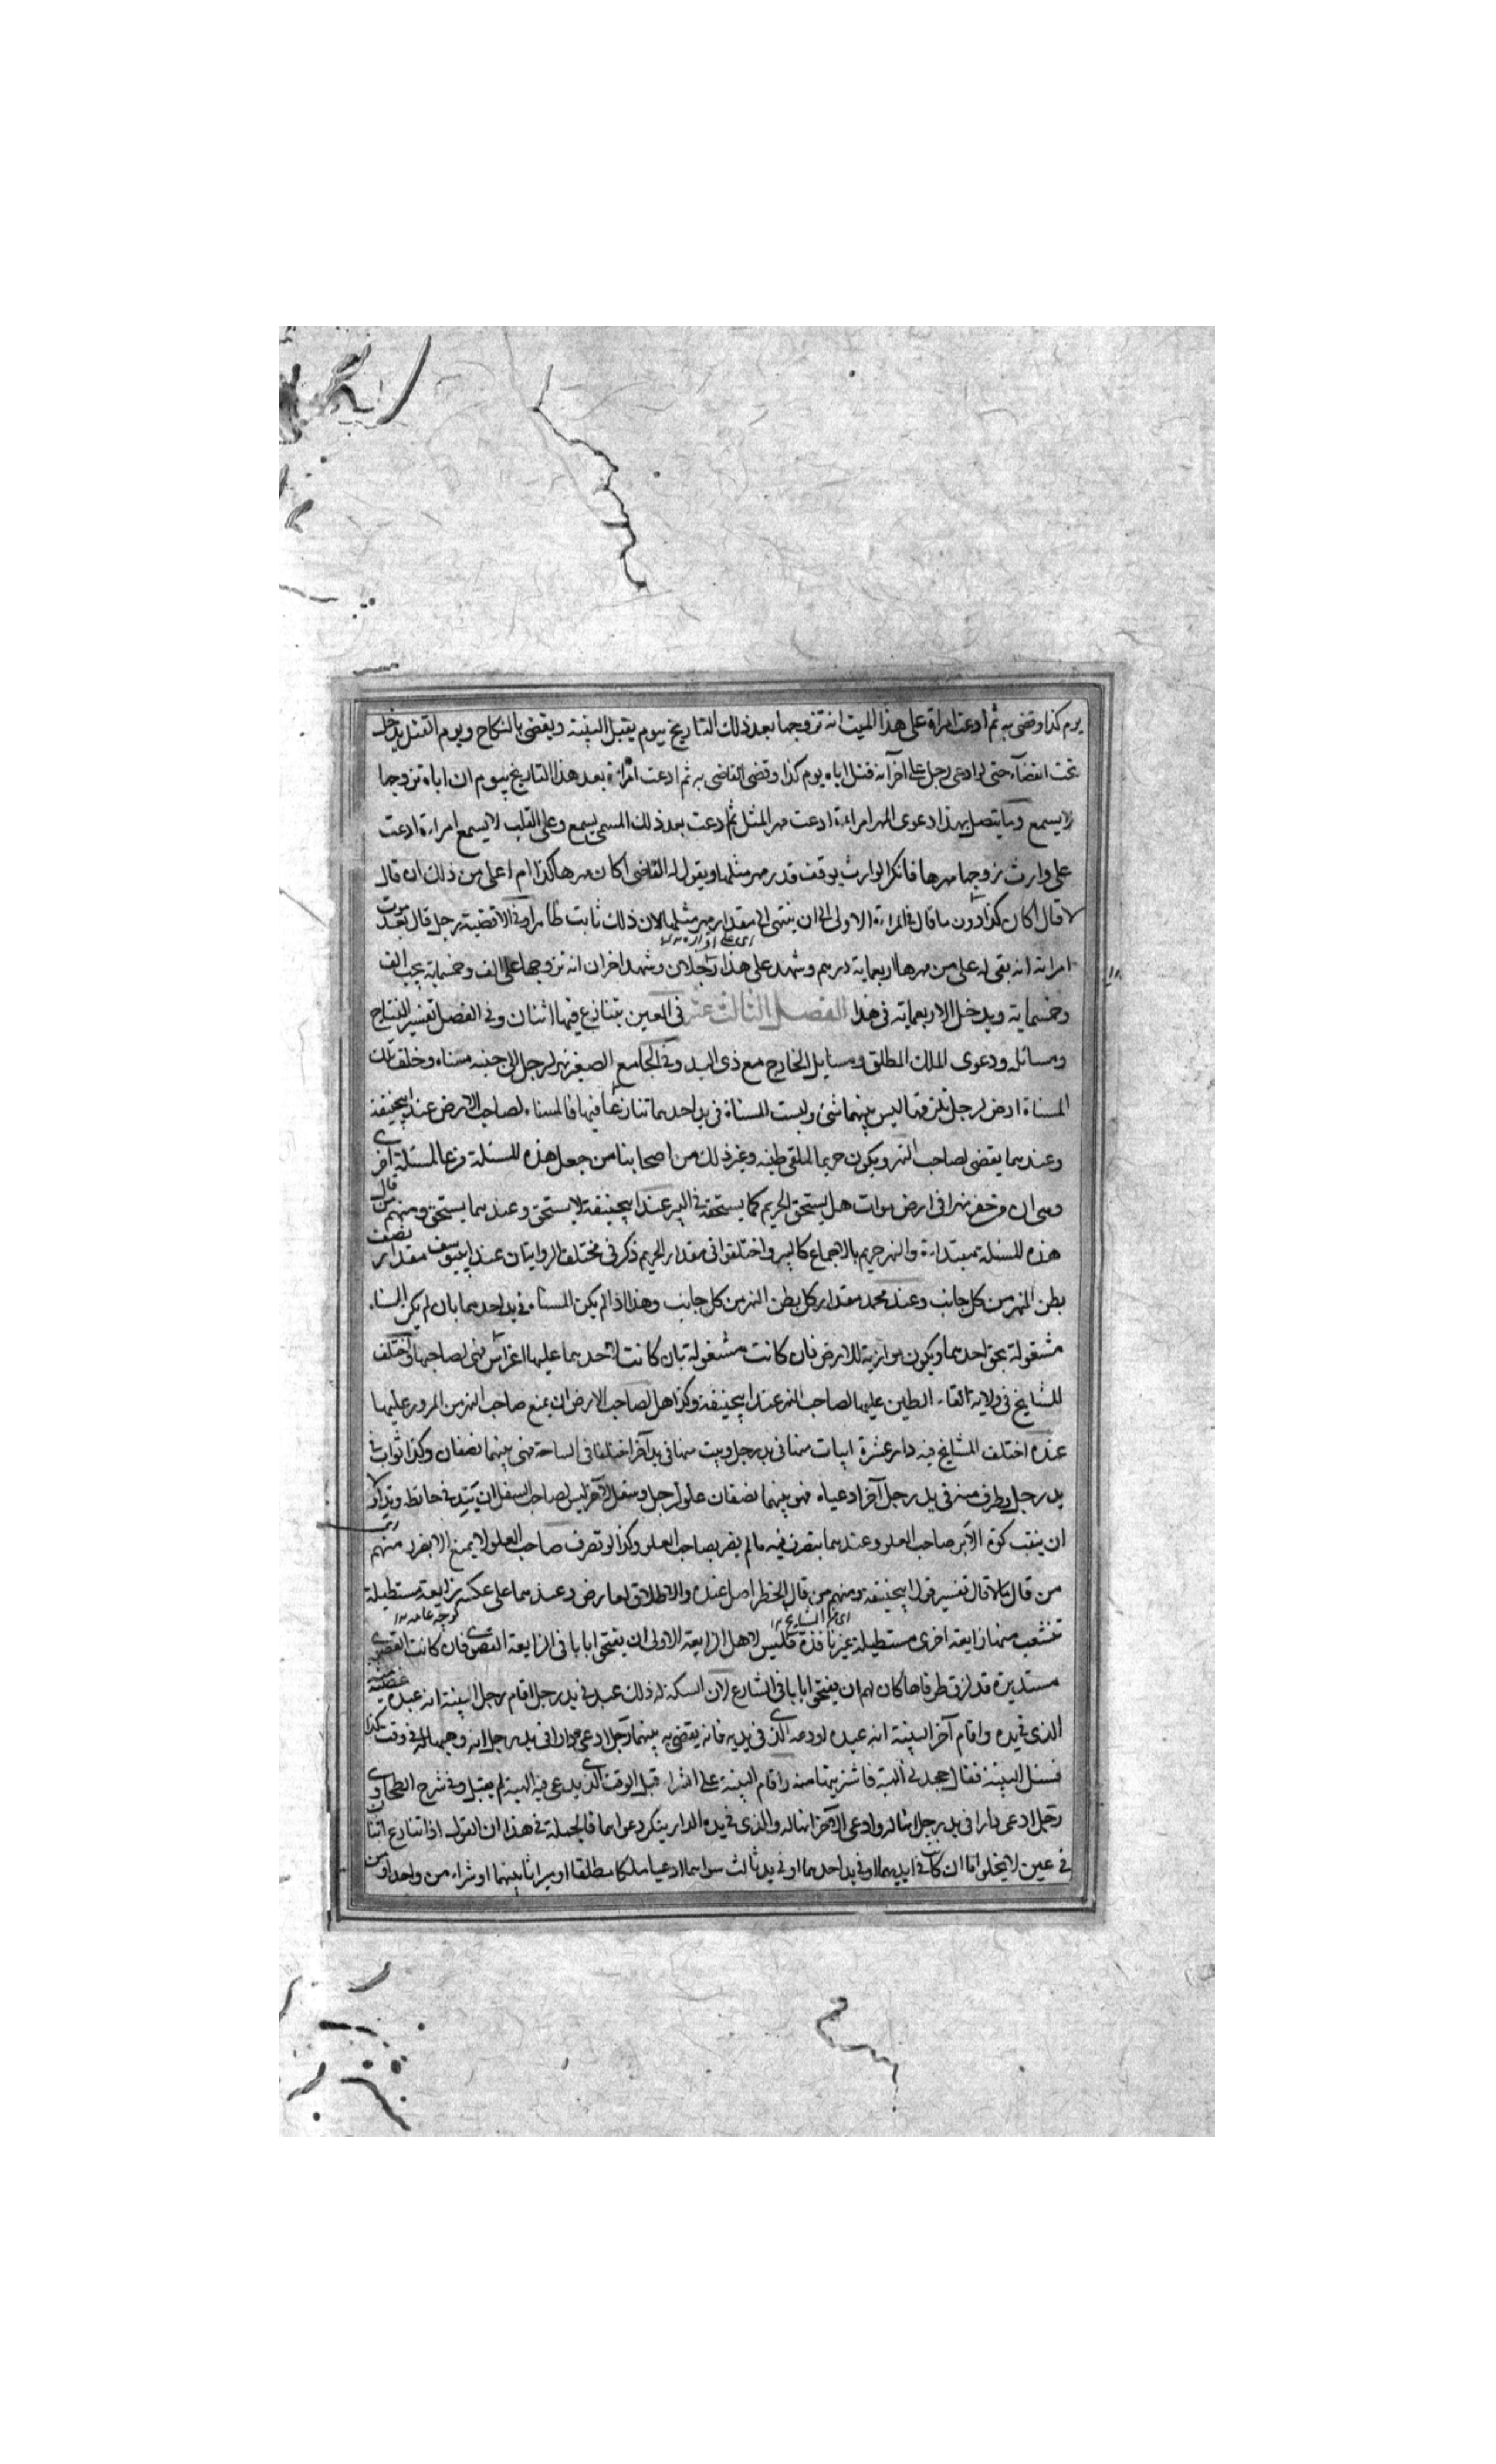 يوم كذا وقضى به ثم ادعت امراة على هذا الميت انه تزوجها بعد ذلك التاريخ بيوم يقبل البينة ويقضى بالنكاح ويوم القتل يدخل
تحت القضآء حتى لو ادعى رجل على آخر انه قتل اباه يوم كذا وقضى القاضى به ثم ادعت امراة بعد هذا التاريخ بيوم ان اباه تزوجها
لا يسمع ومما يتصل بهذا دعوى المهر امراءة ادعت مهر المثل ثم ادعت بعد ذلك المسمى يسمع وعلى القلب لا يسمع امراءة ادعت
على وارث زوجها مهرها فانكر الوارث يوقف قدر مهر مثلها ويقول له القاضى اكان مهرها كذا ام اعلى من ذلك ان قال
لا قال اكان كذا دون ما قال فى المراءة الاولى الى ان ينتهى الى مقدار مهر مثلها لان ذلك ثابت ظاهرا وفى الاقضية رجل قال بعد موت
امراته انه بقى له على من مهرها اربعماية درهم وشهد على هذا رجلان وشهد اخران انه تزوجها على الف وخمسماية يجب الف
وخمسماية ويدخل الاربعماية فى هذا الفصل الثالث عشر فى العين يتنازع فيها اثنان وفى الفصل تفسير النتاج
ومسائله ودعوى الملك المطلق ومسايل الخارج مع ذى اليد وفى الجامع الصغير نهر لرجل الى جنبه مسناة وخلف تلك
المسناة ارض لرجل تلزقها ليس بينهما شئ وليست المسناة فى يد احدهما تنازعا فيها فالمسناة لصاحب الارض عند ابيحنيفة
وعندهما يقضى لصاحب النهر ويكون حريما لملقى طينه وغير ذلك من اصحابنا من جعل هذه المسئلة فرعا لمسئلة اخرى
وهى ان من حفر نهرا فى ارض موات هل يستحق الحريم كما يستحقه فى البير عند ابيحنيفة لا يستحق وعندهما يستحق ومنهم من قال
هذه المسئلة مبتداءة والنهر حريم بالاجماع كالبير واختلفوا فى مقدار الحريم ذكر فى مختلف الروايتان عند ابييوسف مقدار نصف
بطن النهر من كل جانب وعند محمد مقدار كل بطن النهر من كل جانب وهذا اذا لم يكن المسناة فى يد احدهما بان لم يكن المسناة
مشغولة بحق احدهما ويكون موازية للارض فان كانت مشغولة بان كانت لاحدهما عليها اغراس فهى لصاحبها واختلف
المشايخ فى ولاية القاء الطين عليها لصاحب النهر عند ابيحنيفة وكذا هل لصاحب الارض ان يمنع صاحب النهر من المرور عليها
عنده اختلف المشايخ فيه دار عشرة ابيات منها فى يد رجل وبيت منها فى يد آخر اختلفا فى الساحة فهى بينهما نصفان وكذا ثواب فى
يد رجل وطرف منه فى يد رجل آخر ادعياه فهو بينهما نصفان علو لرجل وسفل لآخر ليس لصاحب السفل ان يتد فى حايط وتدا ولا
ان ينقب كوة الا برضا صاحب العلو وعندهما يتصرف فيه مالم يضر بصاحب العلو وكذا لو تصرف صاحب العلو لا يمنع الا بضرر منهم
من قال ما قال تفسير قول ابيحنيفة ومنهم من قال الحظر اصل عنده والاطلاق لعارض وعندهما على عكسه زايغة مستطيلة
تنشعب منها زايغة اخرى مستطيلة غير نافذة فليس لاهل الزايغة الاولى ان يفتحوا بابا فى الزايغة القصوى فان كانت القصوى
مستديرة قد لزق طرفاها كان لهم ان يفتحوا بابا فى الشارع لان السكة له ذلك عبد فى يد رجل اقام رجل البينة انه عبده غصبه منه
الذى فى يده واقام آخر البينة انه عبده اودعه الذى فى يديه فانه يقضى به بينهما رجل ادعى دارا فى يد رجل انه وهبها له فى وقت كذا
فسئل البينة فقال جحدنى الهبة فاشتريتها منه واقام البينة على الشراء قبل الوقت الذى يدعى فيه الهبة لم يقبل وفى شرح الطحاوى
رجل ادعى دارا فى يد رجل انها له وادعى الآخر انها له والذى فى يده الدار ينكر دعواهما فالجملة فى هذا ان القول اذا تنازع اثنان
فى عين لا يخلو اما ان كان فى ايديهما او فى يد احدهما او فى يد ثالث سواهما ادعيا ملكا مطلقا او ميراثا بينهما او شراء من واحد او من